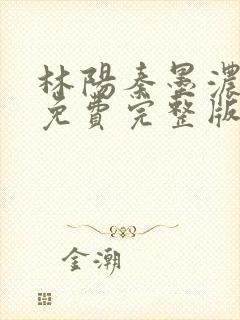 林陽秦墨濃
免費完整版
金潮